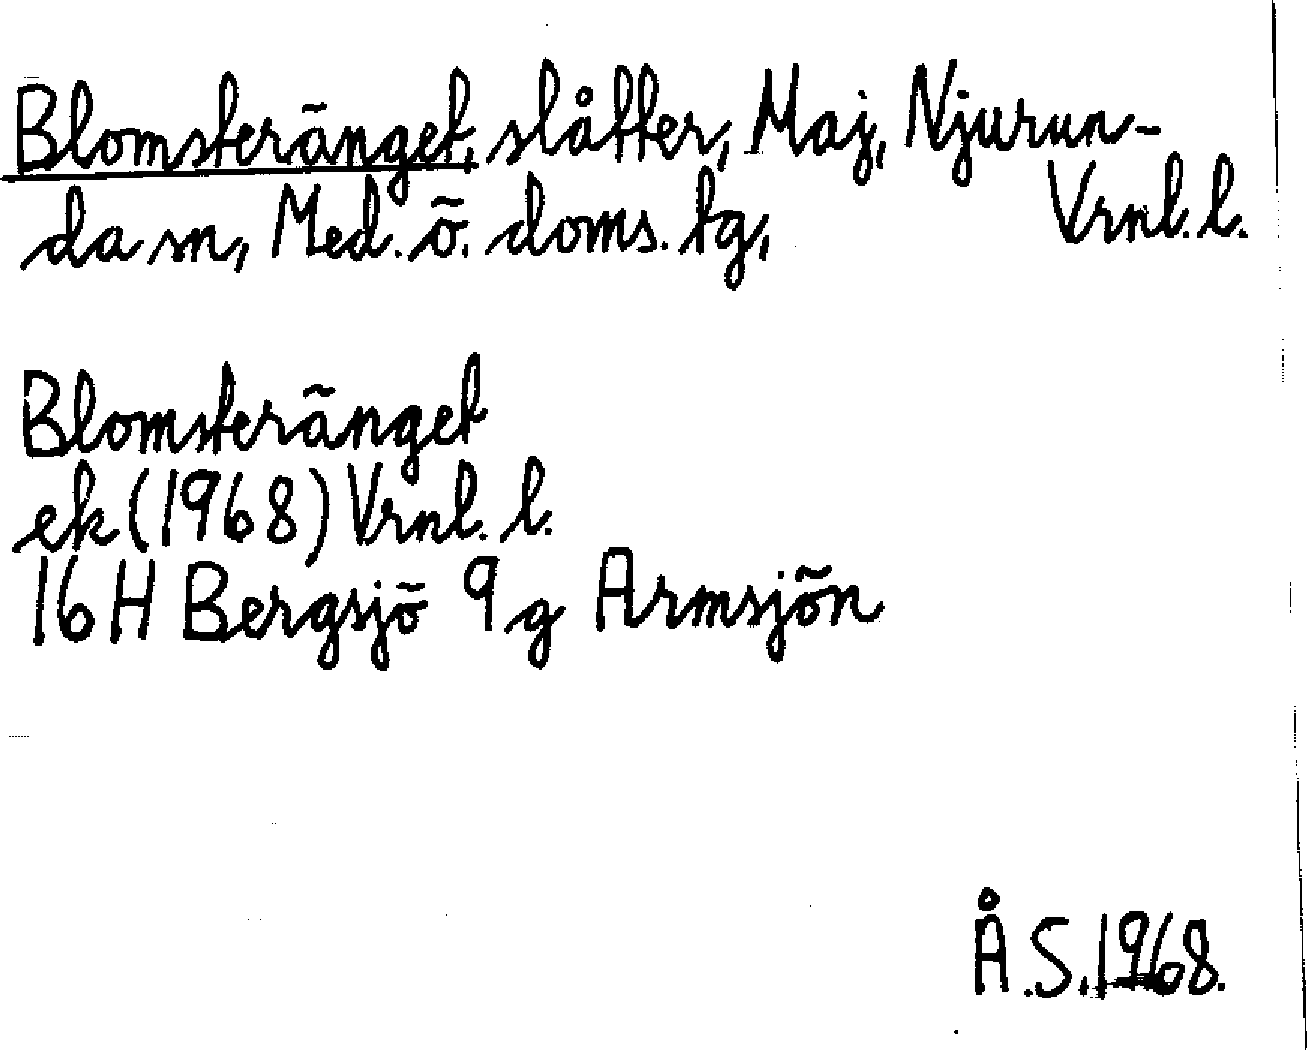 Blomsteränget, slåtter, Maj, Njurun-
da sn, Med. ö. doms. tg, Vrnl. l.
Blomsteränget
ek (1968) Vrnl. l.
16H Bergsjö 9g Armsjön
Å.S.1968.